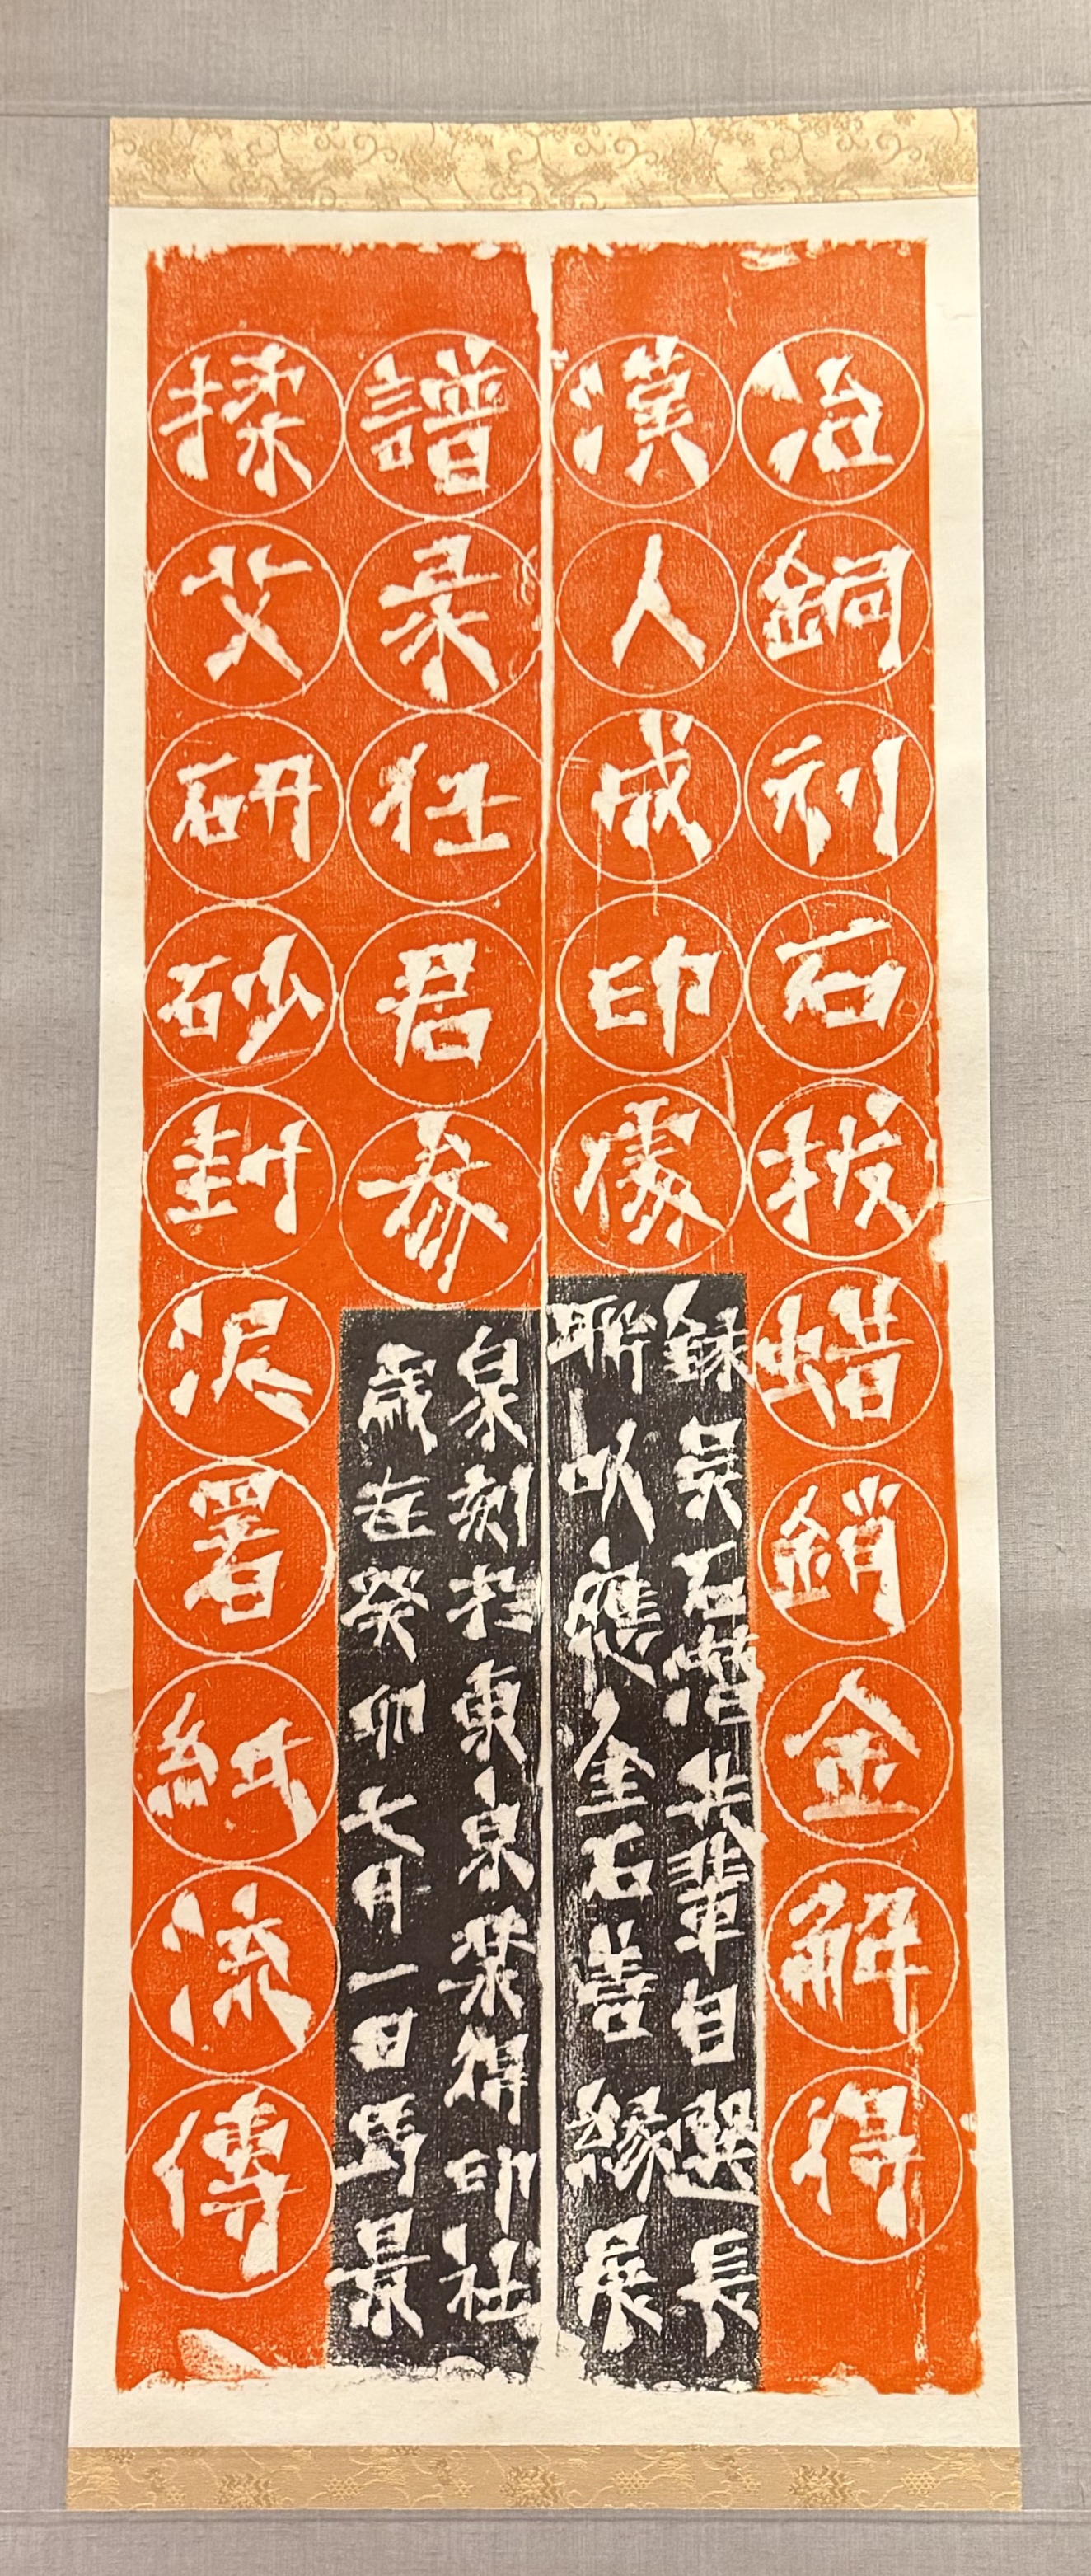 冶銅刓石拔蜡銷金解得
漢人成印處
録吴石潛先輩自選長
聯以應金石善緣展
揉艾研砂封泥署紙流傳
譜录任君参
歲在癸卯七月一日景
泉刻於東京樂得印社